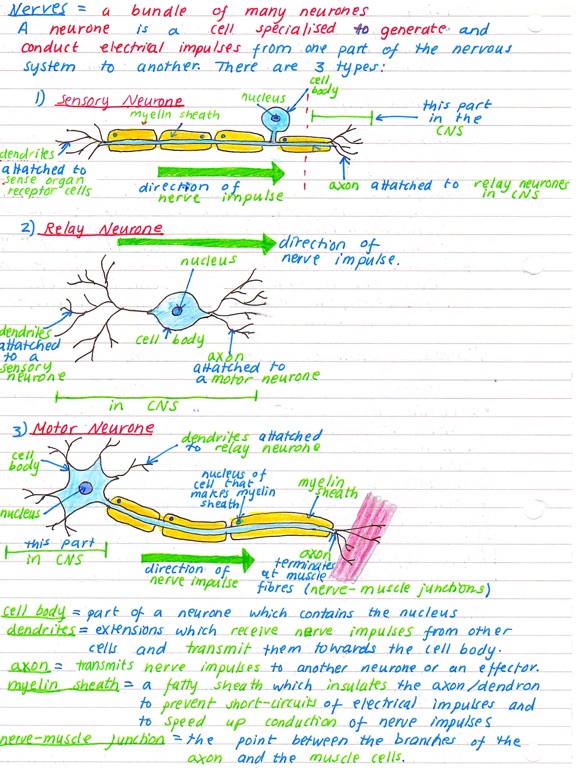 Nerves = a bundle of many neurones
A neurone is a cell specialised to generate and
conduct electrical impulses from one part of the nervous
system to another. There are 3 types:
1) Sensory Neurone
myelin sheath
nucleus
cell
body
this part
in the
CNS
dendrites
attatched to
sense organ
receptor cells
direction of
nerve impulse
axon attatched to relay neurones
in CNS
2) Relay Neurone
direction of
nerve impulse.
nucleus
dendrites
attatched
to a
sensory
neurone
cell body
axon
attatched to
a motor neurone
in CNS
3) Motor Neurone
cell
body
dendrites attatched
to relay neurone
nucleus of
cell that
makes myelin
sheath
myelin
sheath
nucleus
this part
in CNS
direction of
nerve impulse
axon
terminates
at muscle
fibres (nerve-muscle junctions)
cell body = part of a neurone which contains the nucleus
dendrites = extensions which receive nerve impulses from other
cells and transmit them towards the cell body.
axon = transmits nerve impulses to another neurone or an effector.
myelin sheath = a fatty sheath which insulates the axon/dendron
to prevent short-circuits of electrical impulses and
to speed up conduction of nerve impulses
nerve-muscle junction = the point between the branches of the
axon and the muscle cells.